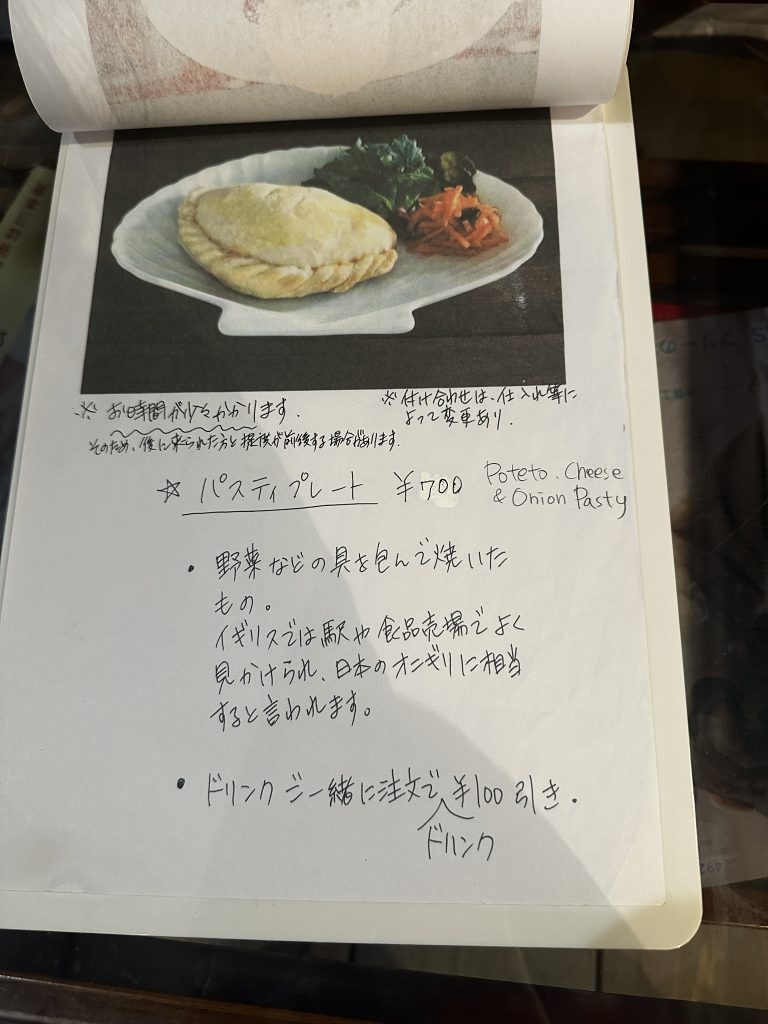 ※ お時間が少々かかります.
そのため、後に来られた方と提供が前後する場合があります.
※ 付け合わせは、仕入れ等に
よって変更あり.
☆ パスティプレート ¥700
Poteto. Cheese
& Onion Pasty
・野菜などの具を包んで焼いた
もの。
イギリスでは駅や食品売場でよく
見かけられ、日本のオニギリに相当
すると言われます。
・ドリンクご一緒に注文で ¥100 引き.
ドリンク